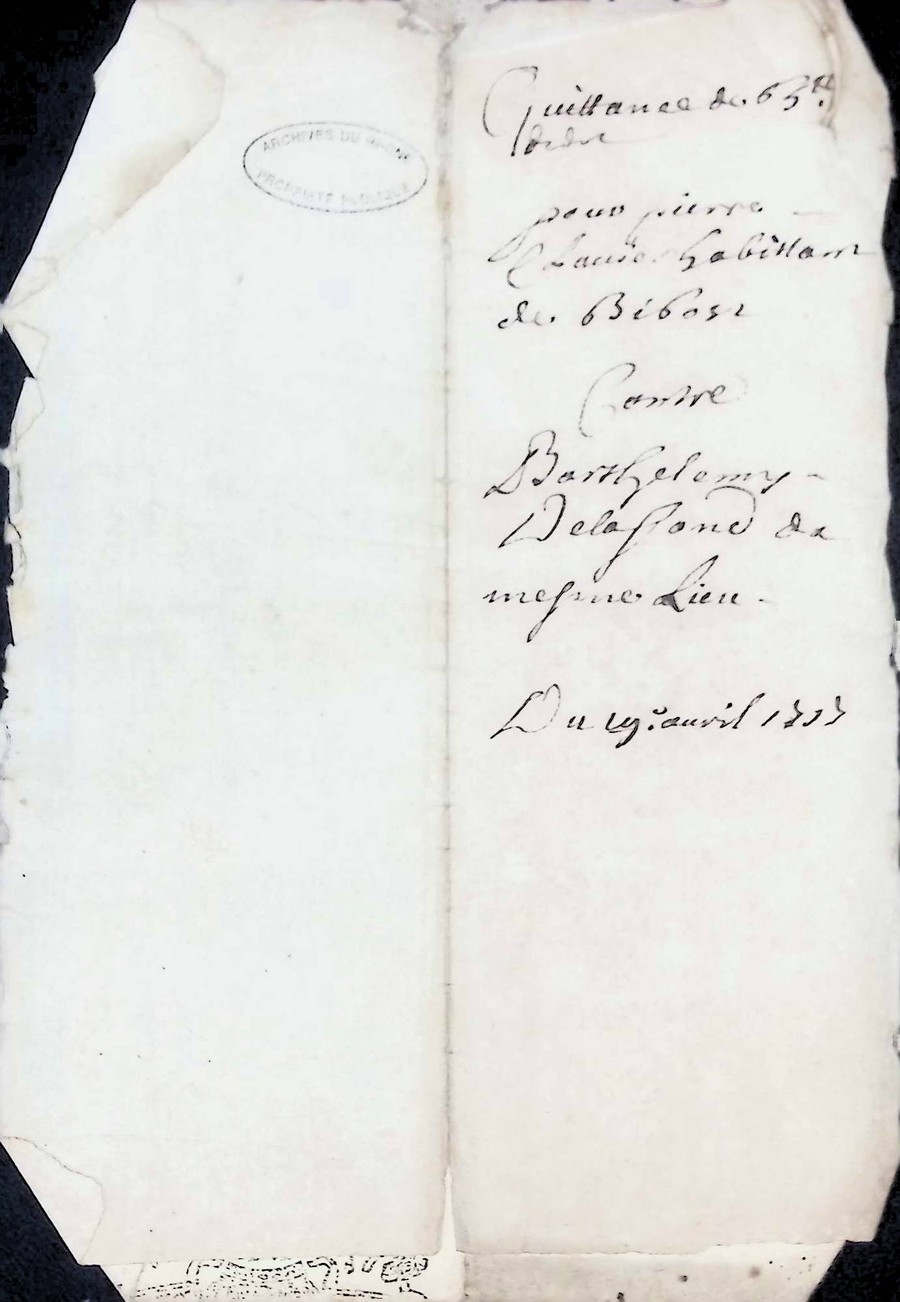 ARCHIVES DU RHONE
PROPRIÉTÉ PUBLIQUE
Quittance de 63ᵗᵗ
pour pierre
Claude habittant
de Bibost
Contre
Barthelemy
Delafond du
mesme Lieu
Du 19ᵉ avril 1717